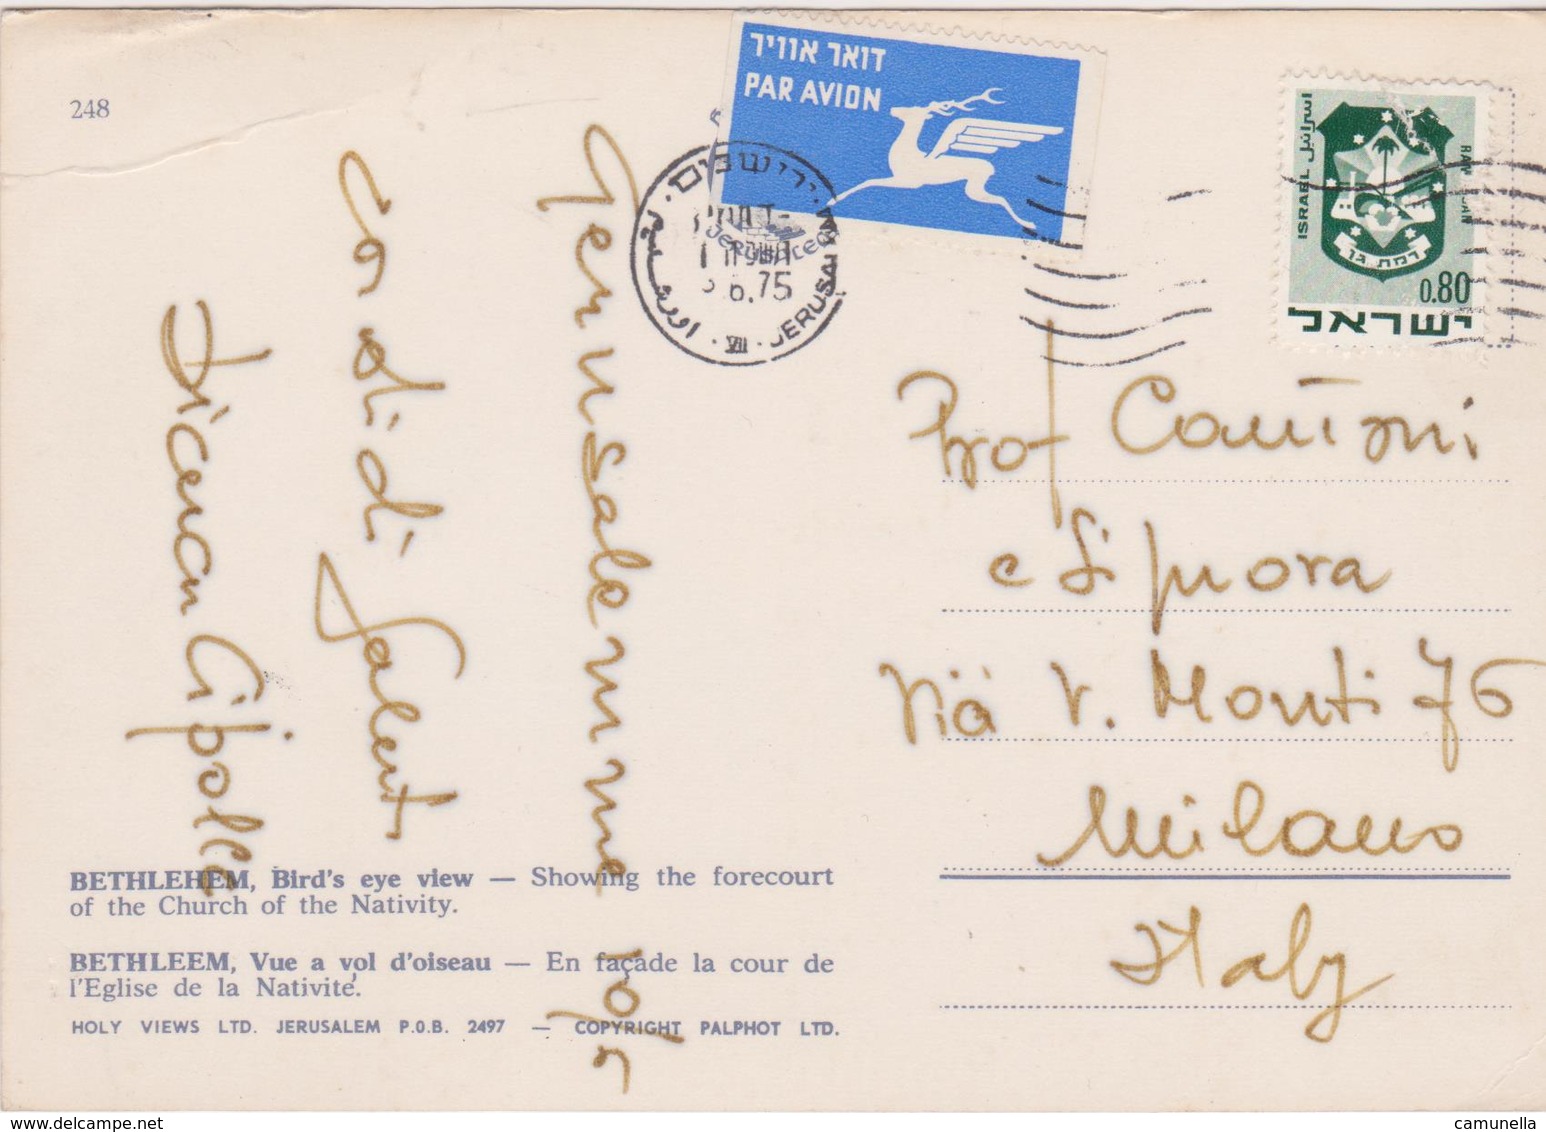 248
דואר אוויר
PAR AVION
ירושלים
JERUSALEM
6.75
اسرائيل
ISRAEL
רמת גן
0.80
ישראל
Gerusalemme
Cordiali
Saluti
Prof Cantoni
e Sipora
Via V. Monti 76
Milano
Italy
BETHLEHEM, Bird's eye view — Showing the forecourt
of the Church of the Nativity.
BETHLEEM, Vue a vol d'oiseau — En façade la cour de
l'Eglise de la Nativité.
HOLY VIEWS LTD. JERUSALEM P.O.B. 2497 — COPYRIGHT PALPHOT LTD.
camunella